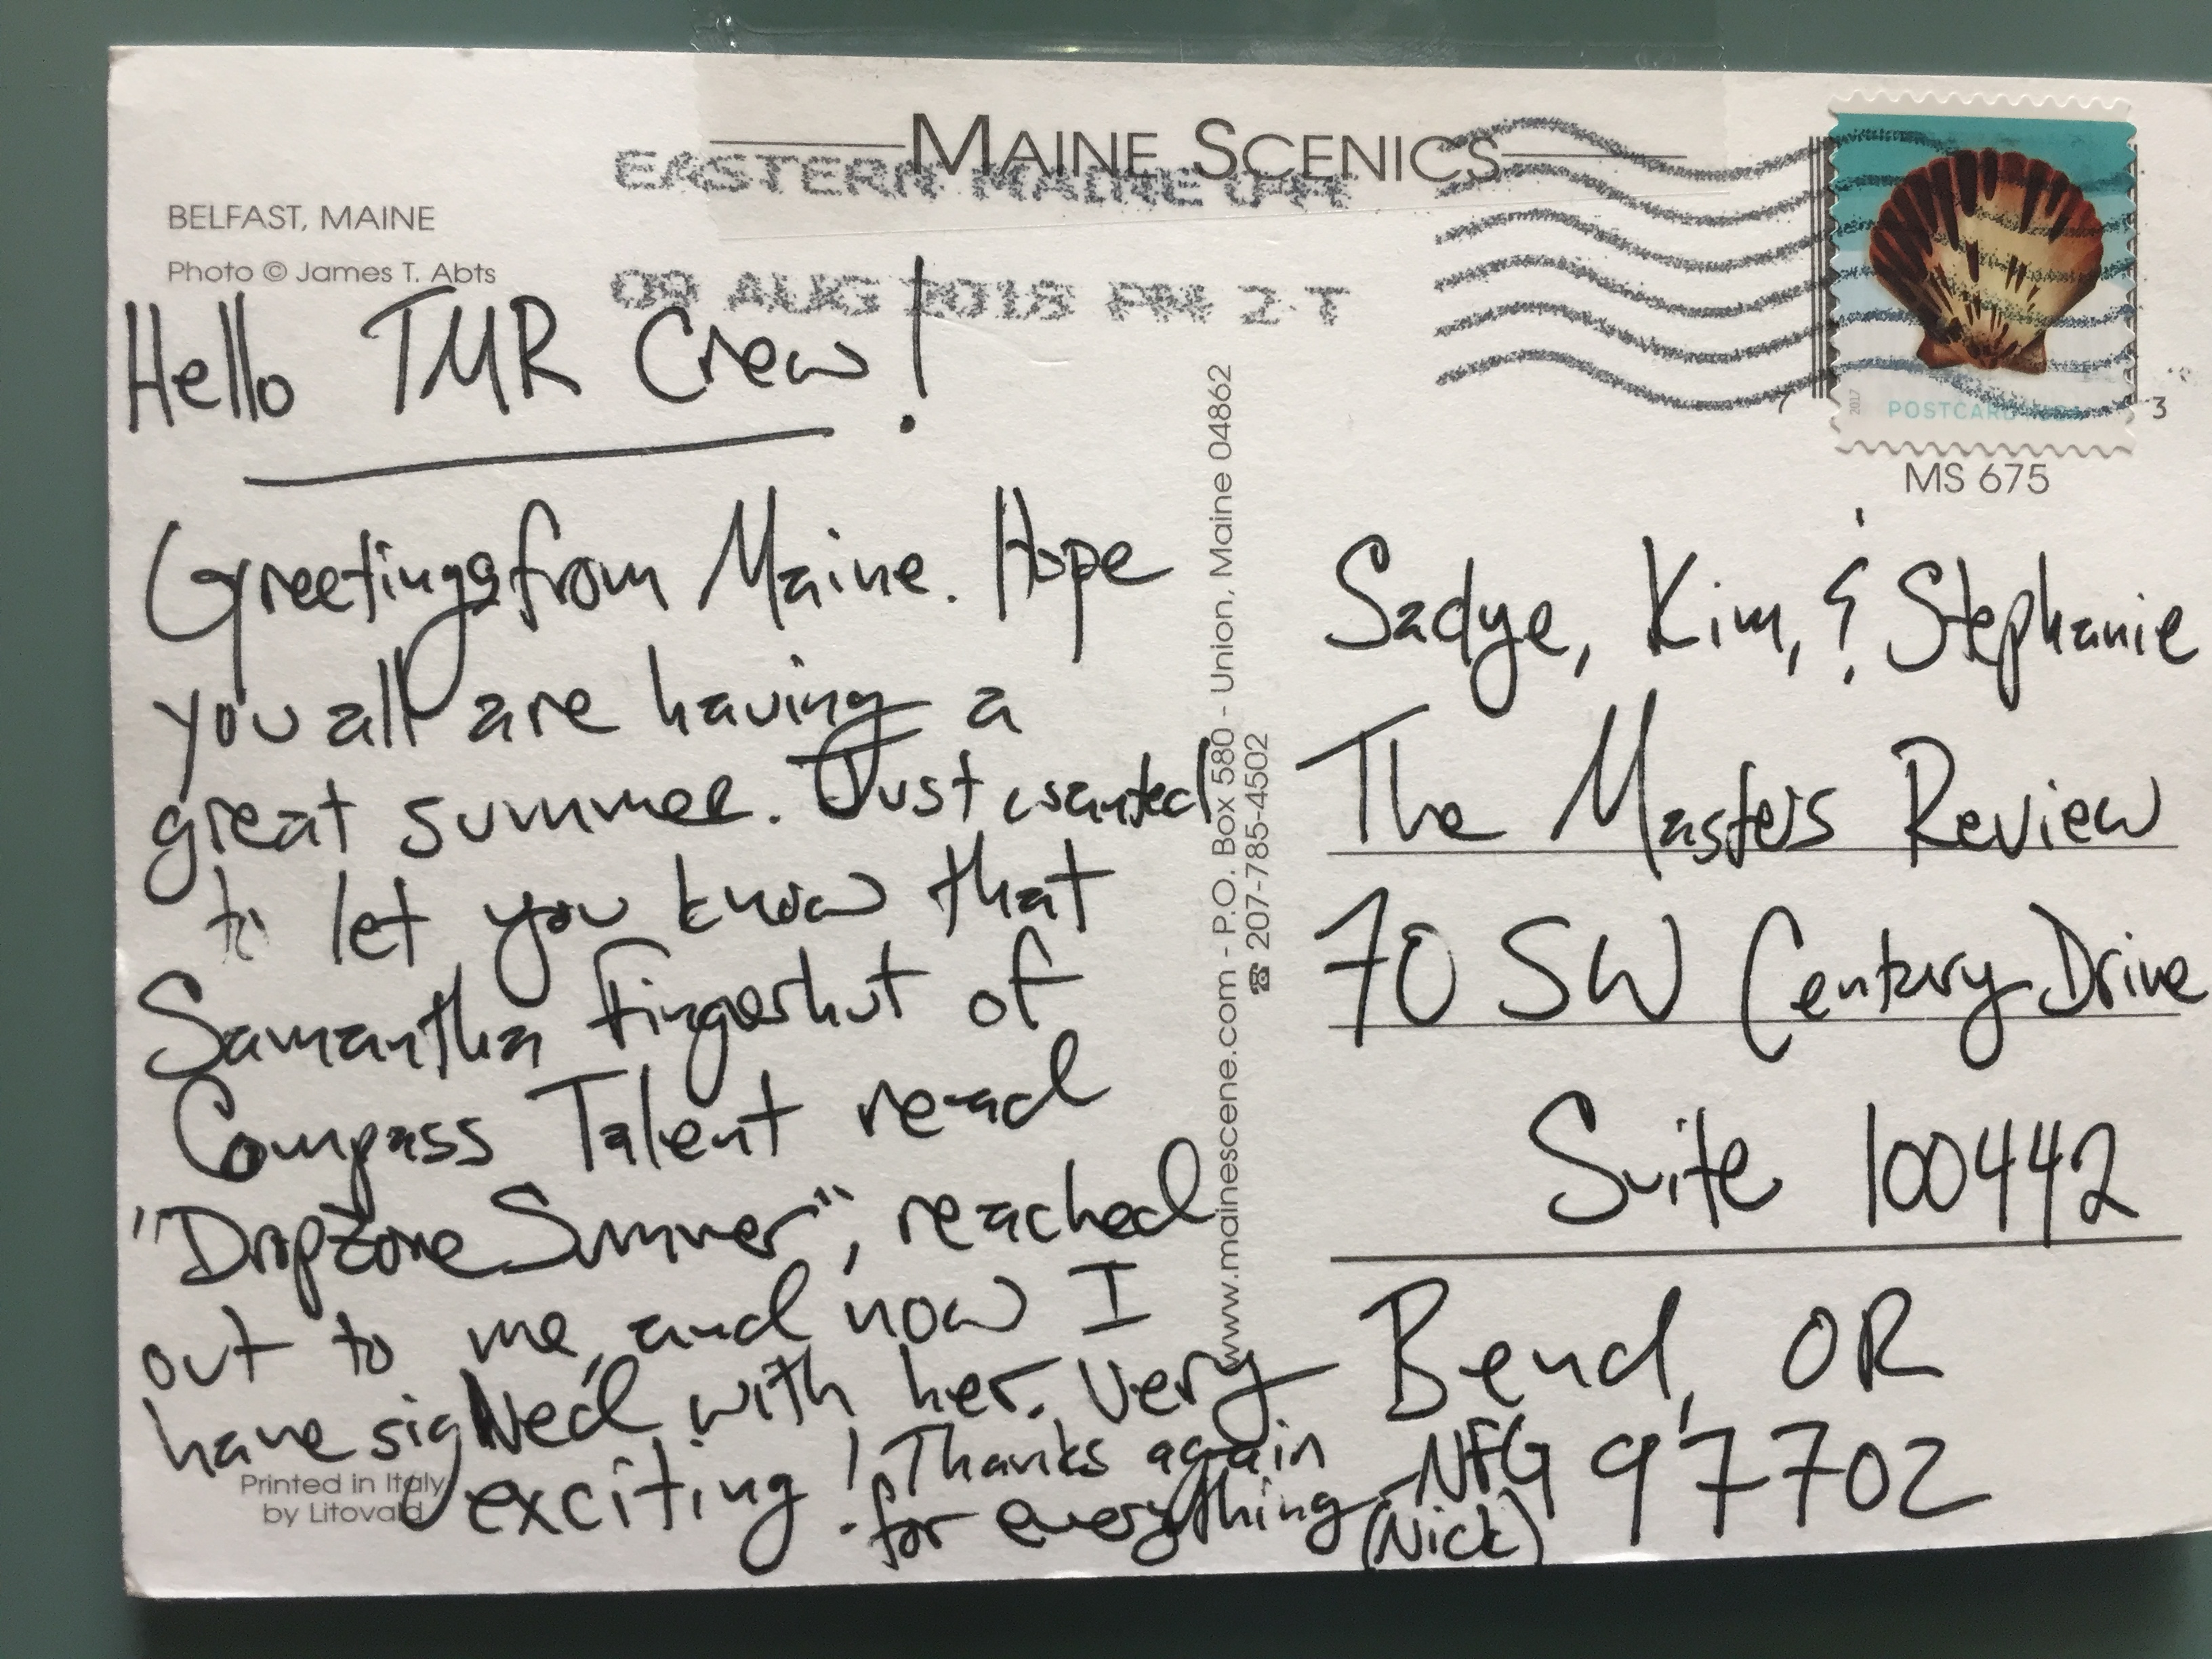 MAINE SCENICS
EASTERN MAINE
09 AUG 2018 PM 2 T
BELFAST, MAINE
Photo © James T. Abts
Hello TMR Crew!
Greetings from Maine. Hope
you all are having a
great summer. Just wanted
to let you know that
Samantha Fingerhut of
Compass Talent read
"Dropzone Summer", reached
out to me, and now I
have sigNed with her. Very
exciting! Thanks again
for everything
-NFG
(Nick)
Printed in Italy
by Litovald
www.mainescene.com - P.O. Box 580 - Union, Maine 04862
☎ 207-785-4502
2017
POSTCARD
7
3
MS 675
Sadye, Kim, & Stephanie
The Masters Review
70 SW Century Drive
Suite 100442
Bend, OR
97702